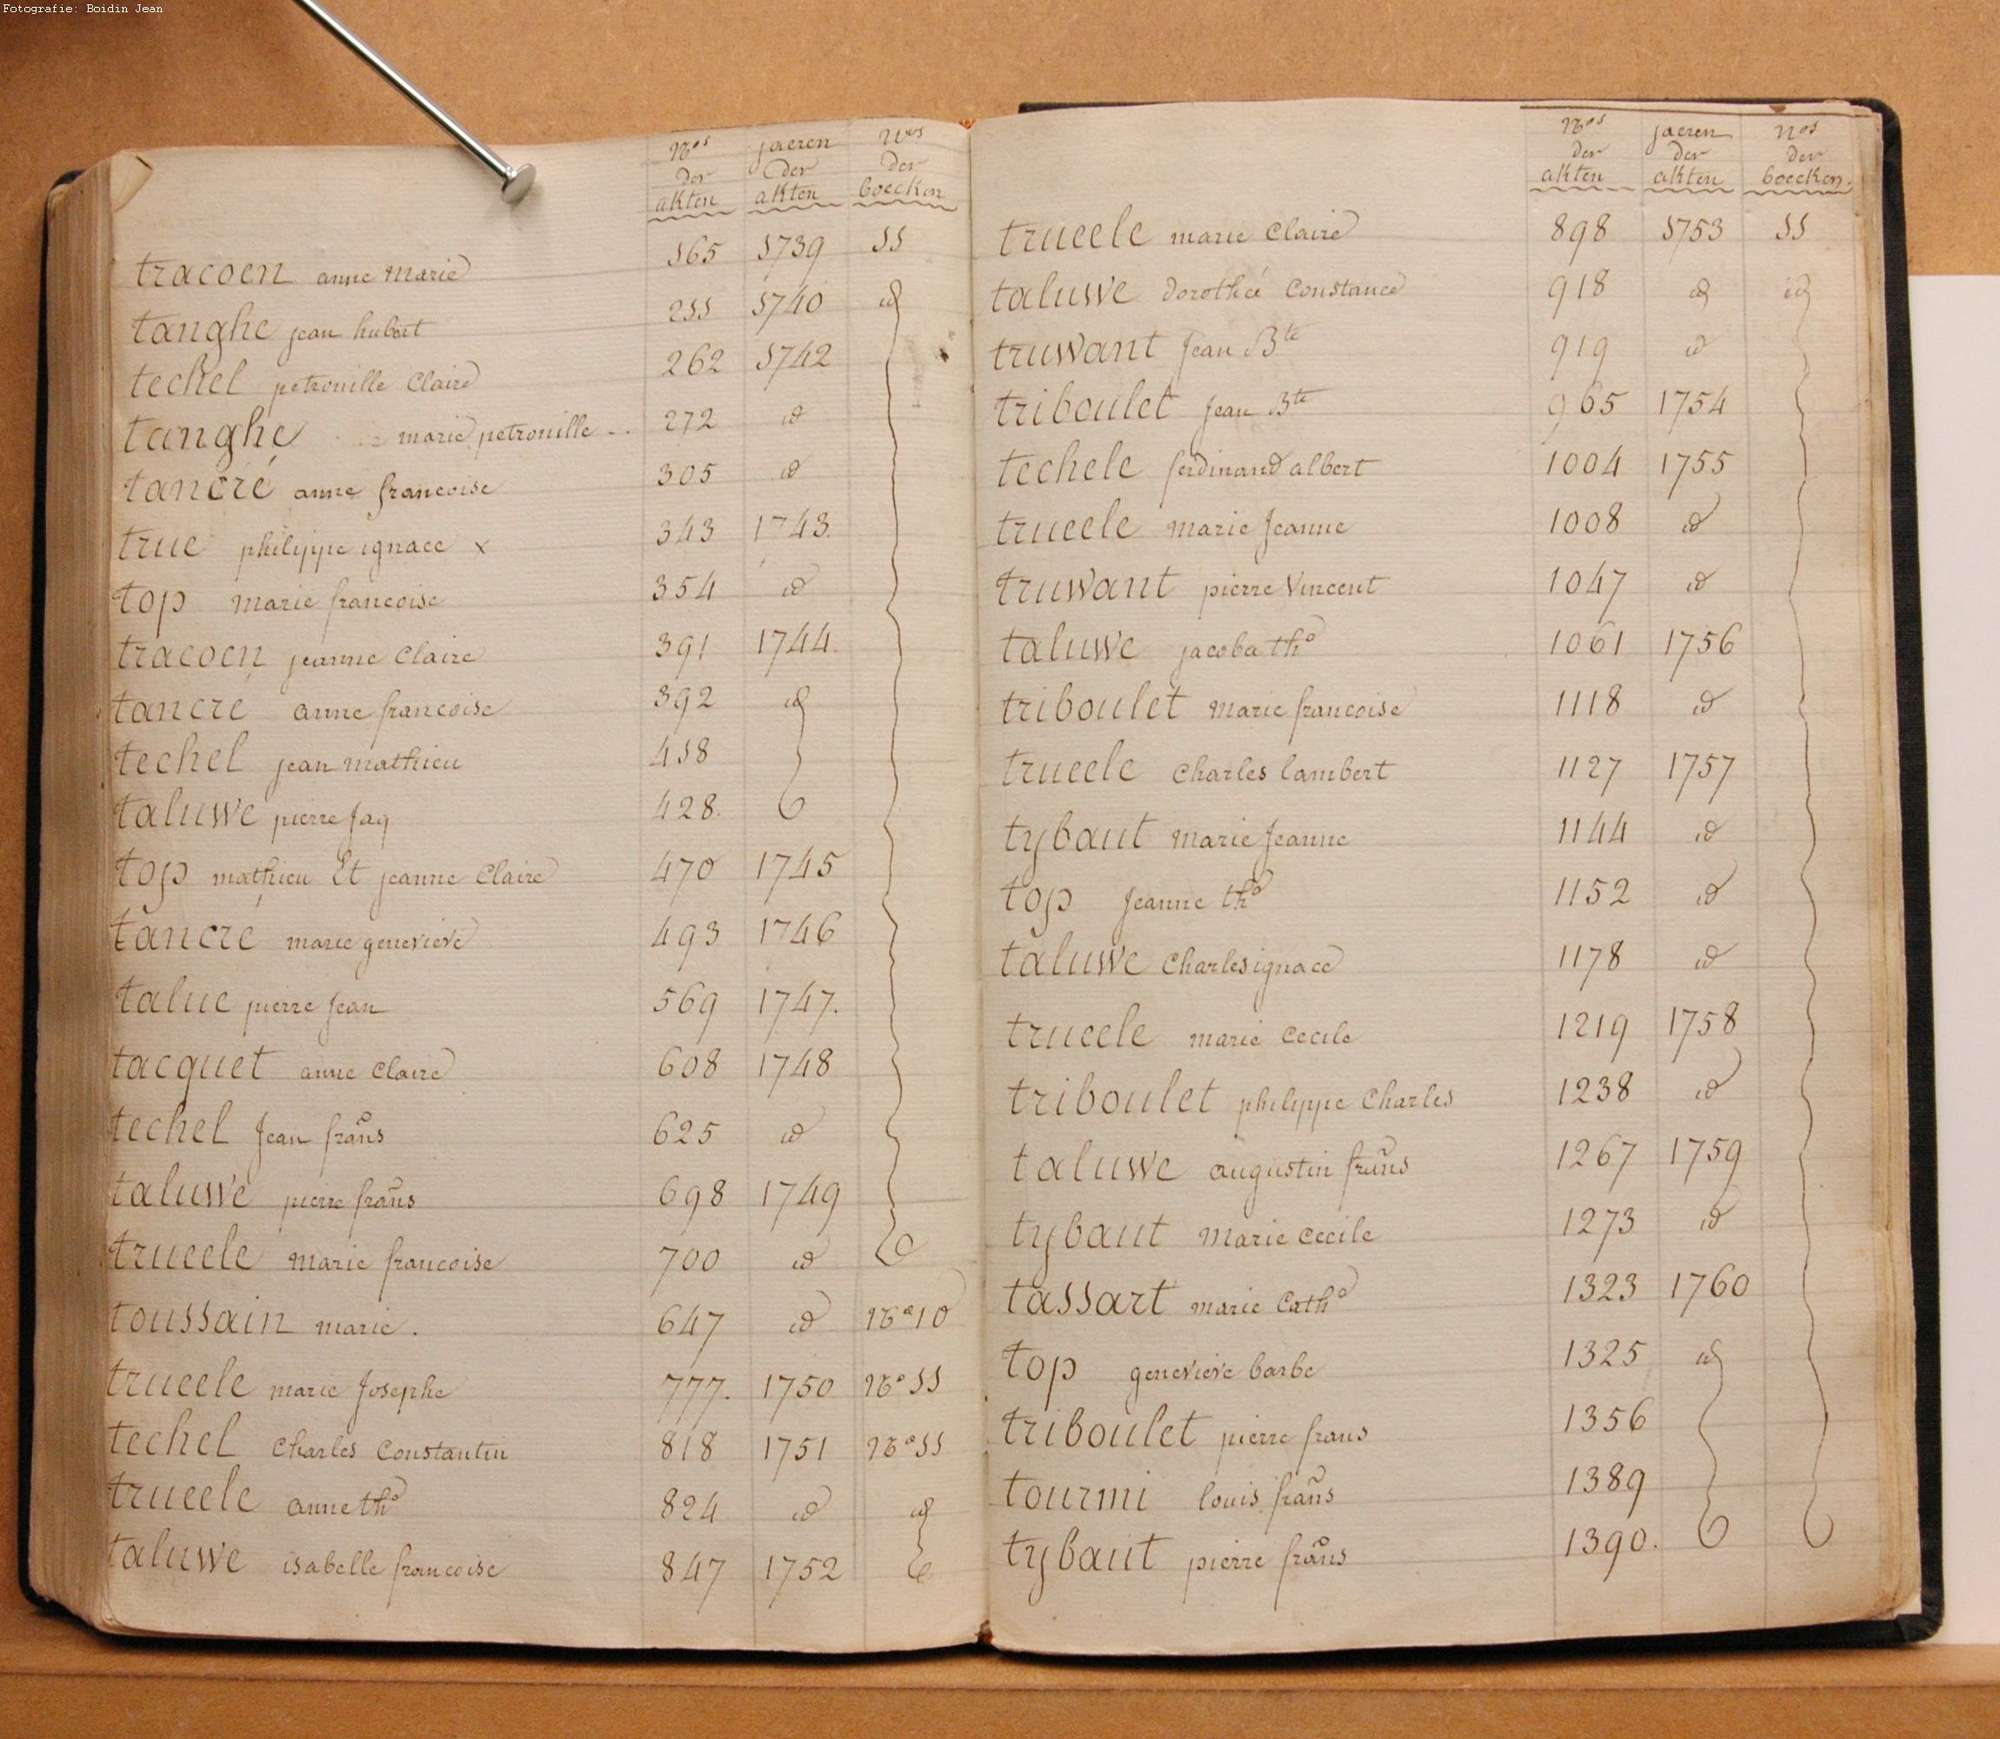 Fotografie: Boidin Jean
Nos der akten jaeren der akten Nos der boecken
tracoen anne marie 165 1739 11
tanghe jean hubert 211 1740 id
techel petronille Claire 262 1742
tanghe marie petronille 272 id
tancré anne francoise 305 id
true philippe ignace x 343 1743.
top marie francoise 354 id
tracoen jeanne Claire 391 1744.
tancré anne francoise 392 id
techel jean mathieu 418
taluwe pierre Jaq 428.
top mathieu Et jeanne Claire 470 1745
tancré marie genevieve 493 1746
talue pierre Jean 569 1747.
tacquet anne Claire 608 1748
techel Jean frans 625 id
taluwe pierre frans 698 1749
trueele marie francoise 700 id
toussain marie. 647 id No 10
trueele marie Josephe 777. 1750 No 11
techel Charles Constantin 818 1751 No 11
trueele anne tha 824 id id
taluwe isabelle francoise 847 1752
Nos der akten jaeren der akten nos der boecken.
trueele marie Claire 898 1753 11
taluwe dorothée Constance 918 id id
truwant Jean Bte 919 id
triboulet Jean Bte 965 1754
techele ferdinand albert 1004 1755
trueele marie Jeanne 1008 id
truwant pierre Vincent 1047 id
taluwe jacoba tha 1061 1756
triboulet marie francoise 1118 id
trueele Charles lambert 1127 1757
tybaut marie Jeanne 1144 id
top Jeanne tha 1152 id
taluwe Charles ignace 1178 id
trueele marie Cecile 1219 1758
triboulet philippe Charles 1238 id
taluwe augustin frans 1267 1759
tybaut marie Cecile 1273 id
tassart marie Catha 1323 1760
top genevieve barbe 1325 id
triboulet pierre frans 1356
tourmi louis frans 1389
tybaut pierre frans 1390.